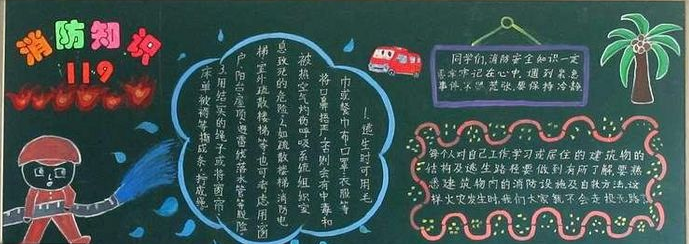 消防知识
119
1.逃生时可用毛
巾或餐巾布口罩衣服等
将口鼻捂严否则会有中毒和
被热空气灼伤呼吸系统组织窒
息致死的危险2.如疏散楼梯消防电
梯室外疏散楼梯等也可考虑用窗
户阳台屋顶避雷线落水管等脱险
3.用结实的绳子或将窗帘
床单被褥等撕成条拧成绳
同学们,消防安全知识一定
要牢牢记在心中,遇到紧急
事件不要慌张,要保持冷静
每个人对自己工作学习或居住的建筑物的
结构及逃生路径要做到有所了解,要熟
悉建筑物内的消防设施及自救方法.这
样火灾发生时,我们大家就不会走投无路了